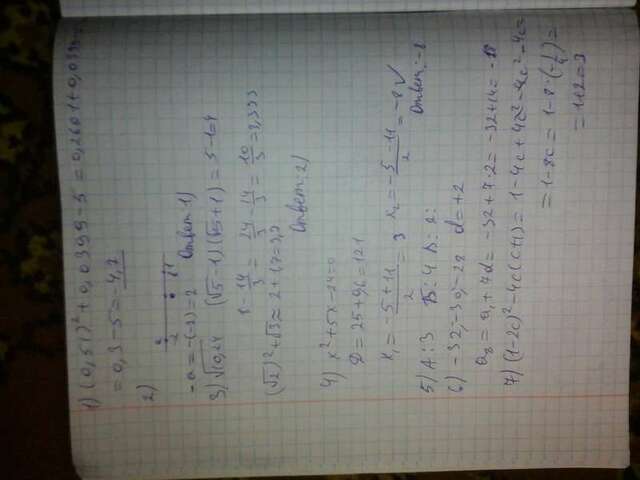 1) (0,51)² + 0,0399 - 5 = 0,2601 + 0,0399
= 0,3 - 5 = -4,7
2)
-2 0
-a = -(-2) = 2 Ответ 1)
3) √0,24 (√5 - 1)(√5 + 1) = 5 - 1 = 4
8 - 14/3 = 24/3 - 14/3 = 10/3 = 3,333
(√2)² + √3 ≈ 2 + 1,7 = 3,7 Ответ: 2)
4) x² + 5x - 24 = 0
D = 25 + 96 = 121
x₁ = -5 + 11 / 2 = 3 x₂ = -5 - 11 / 2 = -8 ✓
Ответ: -8
5) A: 3 Б: 4 В: 2
6) -32; -30; -28 d = +2
a₈ = a₁ + 7d = -32 + 7·2 = -32 + 14 = -18
7) (1 - 2c)² - 4c(c + 1) = 1 - 4c + 4c² - 4c² - 4c =
= 1 - 8c = 1 - 8·(-1/4) =
= 1 + 2 = 3